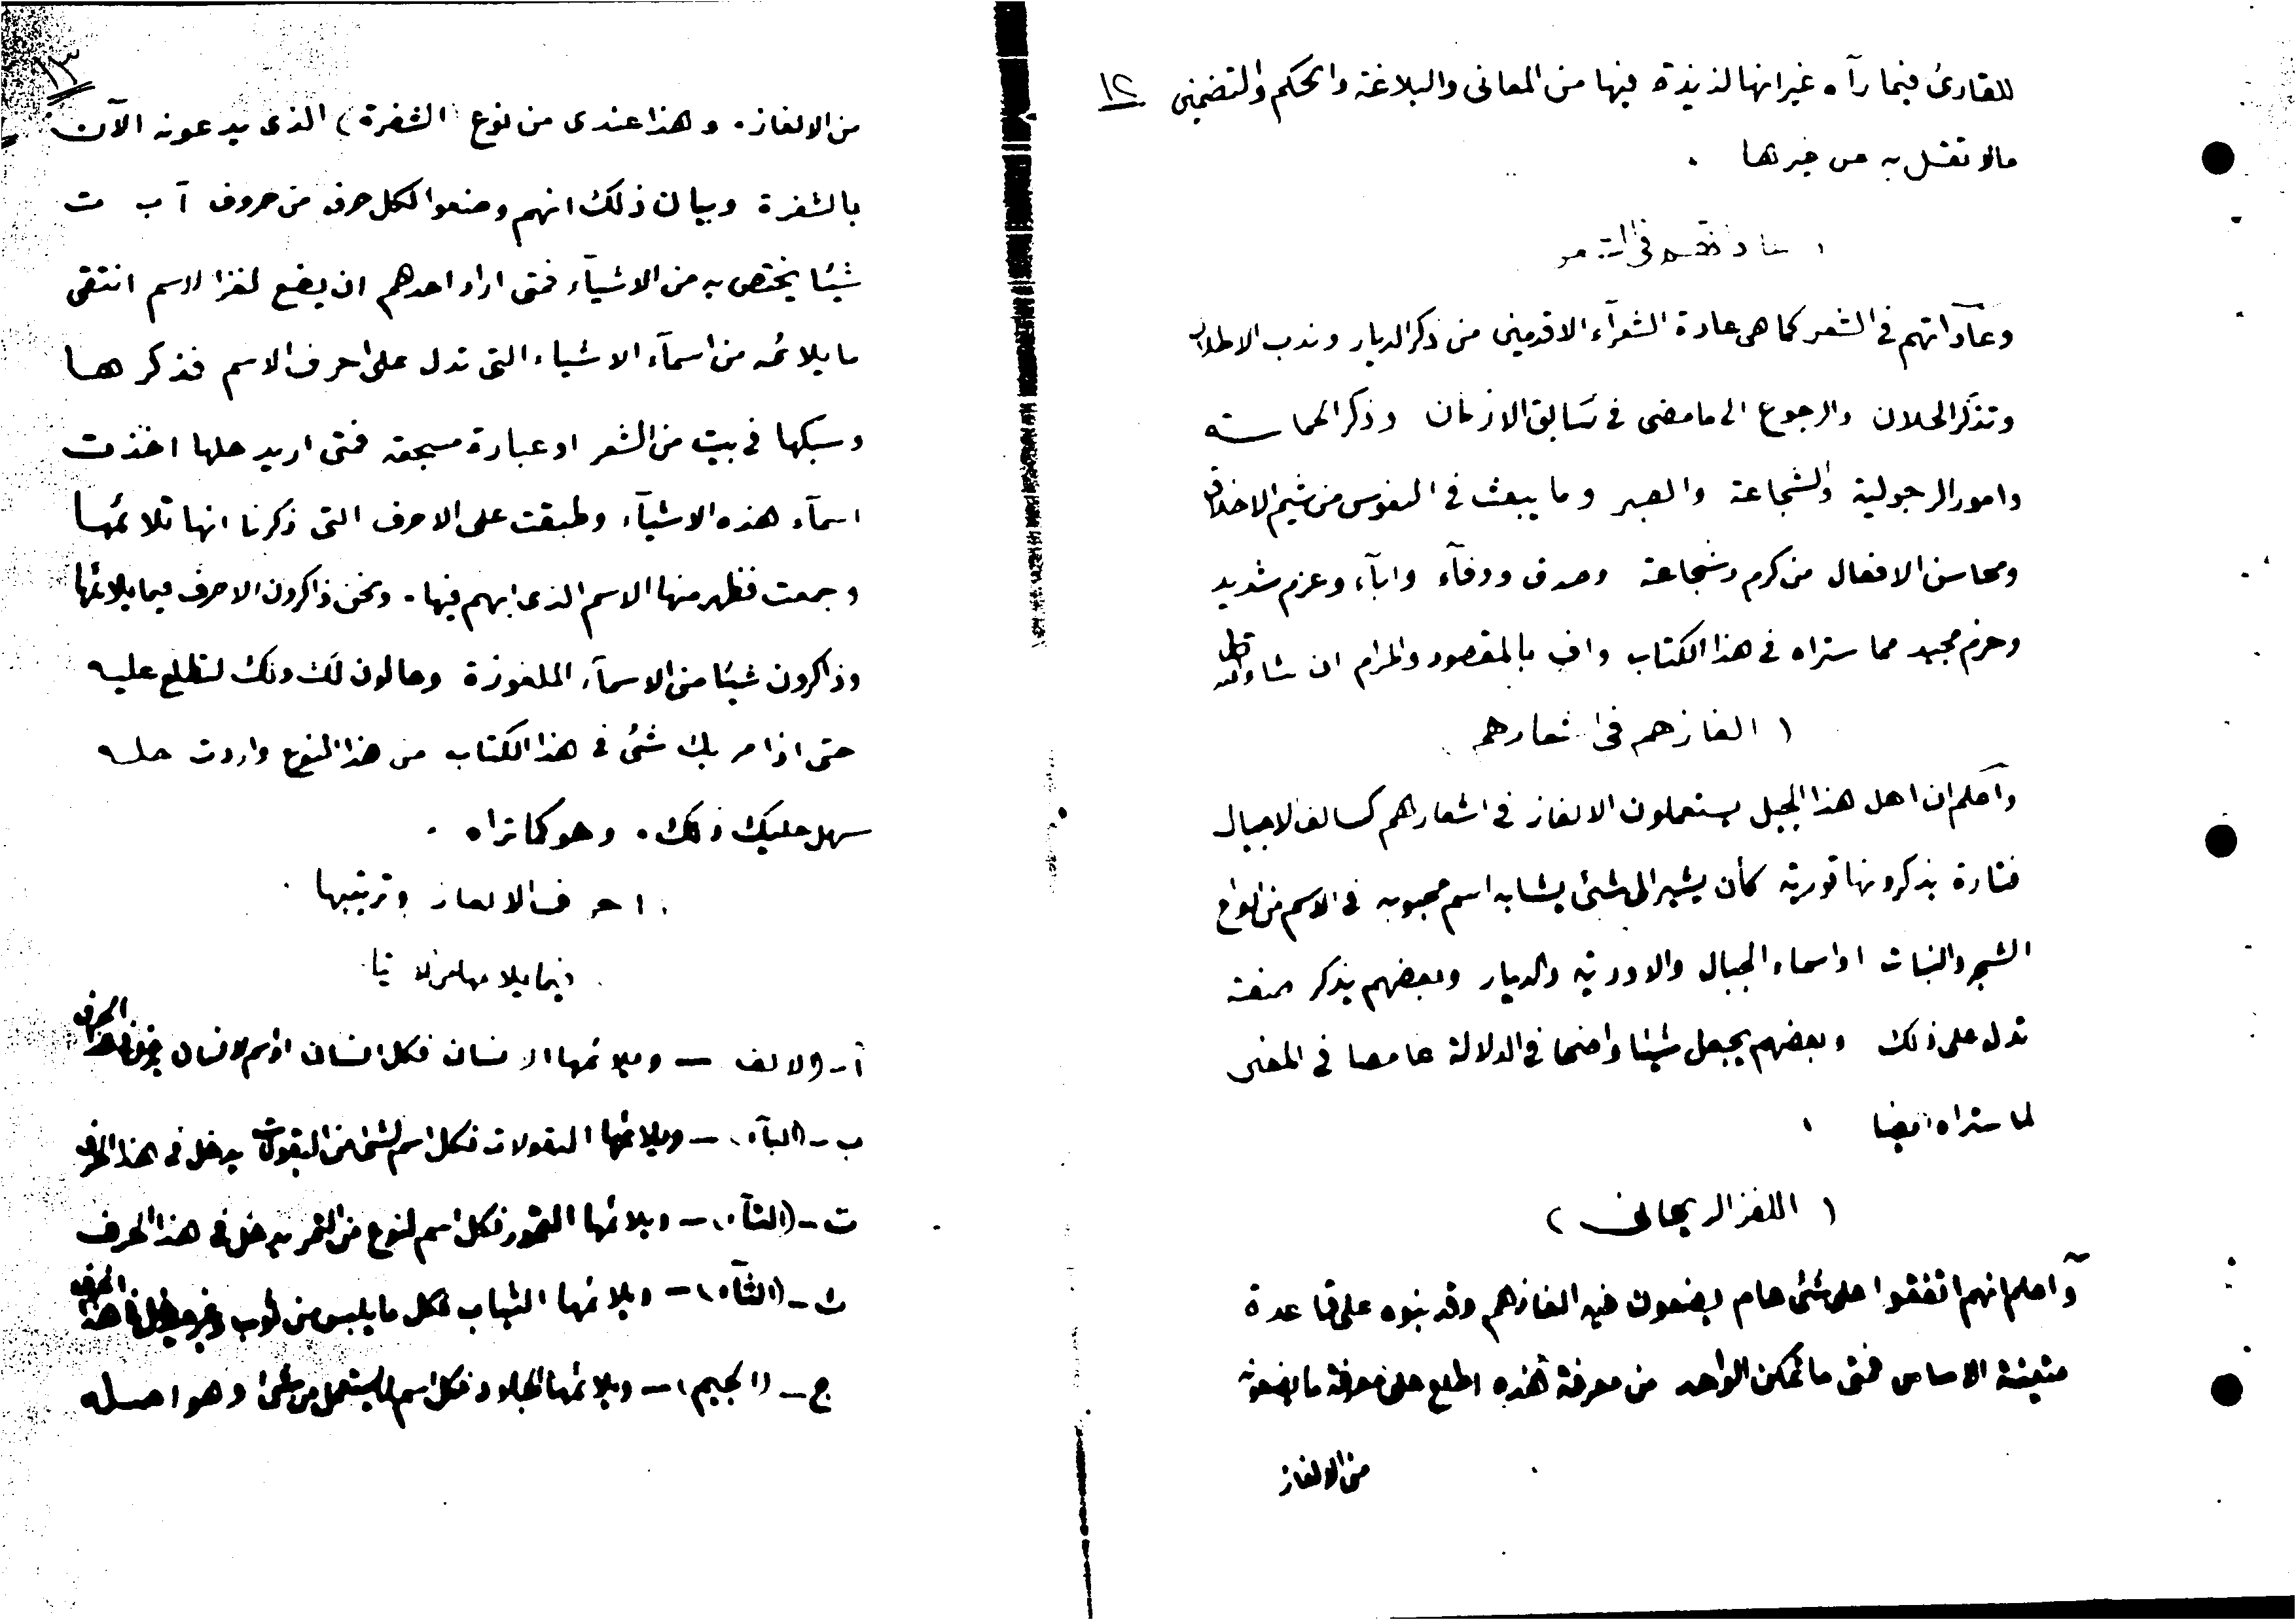 للقارئ فيما رآه غير انها لذيذة فيها من المعانى والبلاغة والحكم والتضمين ١٢
مالا تقل به عن غيرها .
فى الشعر
وعآداتهم فى الشعر كما هى عادة الشعرآء الاقدمين من ذكر الديار وندب الاطلال
وتذكر الخلان والرجوع الى ما مضى فى سابق الازمان وذكر الحماسة
وامور الرجولية والشجاعة والصبر وما يبعث فى النفوس من شيم الاخلاق
ومحاسن الافعال من كرم وشجاعة وصدق ووفآء وابآء وعزم شديد
وحزم مجيد مما ستراه فى هذا الكتاب واف بالمقصود والمرام ان شاء الله
( الغازهم فى اشعارهم
وآعلم ان اهل هذا الجيل يستعملون الالغاز فى اشعارهم كسالف الاجيال
فتارة يذكرونها تورية كأن يشير الى شئ يشابه اسم محبوبه فى الاسم من انواع
الشجر والنبات او اسماء الجبال والاودية والديار وبعضهم يذكر صفة
تدل على ذلك وبعضهم يجعل شيئا واضحا فى الدلالة غامضا فى المعنى
لما ستراه ايضا
( اللغز الريحانى )
وآعلم انهم اتفقوا على شئ هام يضعون فيه الغازهم وقد بنوه على قاعدة
متينة الاساس فمتى ما تمكن الواحد من معرفة هذه اطلع على معرفة ما يضعونه
من الالغاز
١٣
من الالغاز . وهذا عندى من نوع الشفرة ) الذى يدعونه الآن
بالشفرة وبيان ذلك انهم وضعوا لكل حرف من حروف آ ب ت
شيئا يختص به من الاشيآء فمتى اراد احدهم ان يضع لغزا لاسم انتقى
ما يلائمه من اسمآء الاشياء التى تدل على احرف الاسم فذكرها
وسبكها فى بيت من الشعر او عبارة مسجعة فمتى اريد حلها اخذت
اسمآء هذه الاشيآء وطبقت على الاحرف التى ذكرنا انها تلائمها
وجمعت فظهر منها الاسم الذى ابهم فيها . ونحن ذاكرون الاحرف فيما يلائمها
وذاكرون شيئا من الاسمآء الملغوزة وحالون لك ذلك لتطلع عليه
حتى اذا مر بك شئ فى هذا الكتاب من هذا النوع واردت حله
سهل عليك ذلك . وهو كما تراه .
احرف الالغاز وترتيبها
فيما يلائمها
آ - (الالف — ويلائمها الانسان فكل انسان او اسم لانسان يدخل فى هذا الحرف
ب - (البآء) — ويلائمها البقولات فكل اسم لشئ من البقولات يدخل فى هذا الحرف
ت - (التآء) — ويلائمها التمور فكل اسم لنوع من التمر يدخل فى هذا الحرف
ث - (الثآء) — ويلائمها الثياب فكل ما يلبس من ثوب وغيره يدخل فى هذا الحرف
ج - (الجيم) — ويلائمها الجلود فكل اسم لما يستعمل من شئ وهو اصله